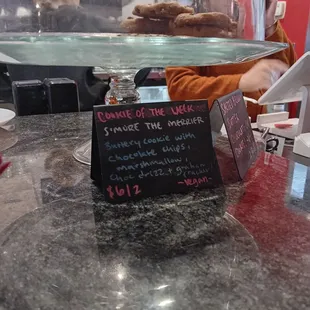 COOKIE OF THE WEEK
S'MORE THE MERRIER
Buttery cookie with
chocolate chips,
marshmallow,
Choc drizz +
$6/2 -VEGAN-